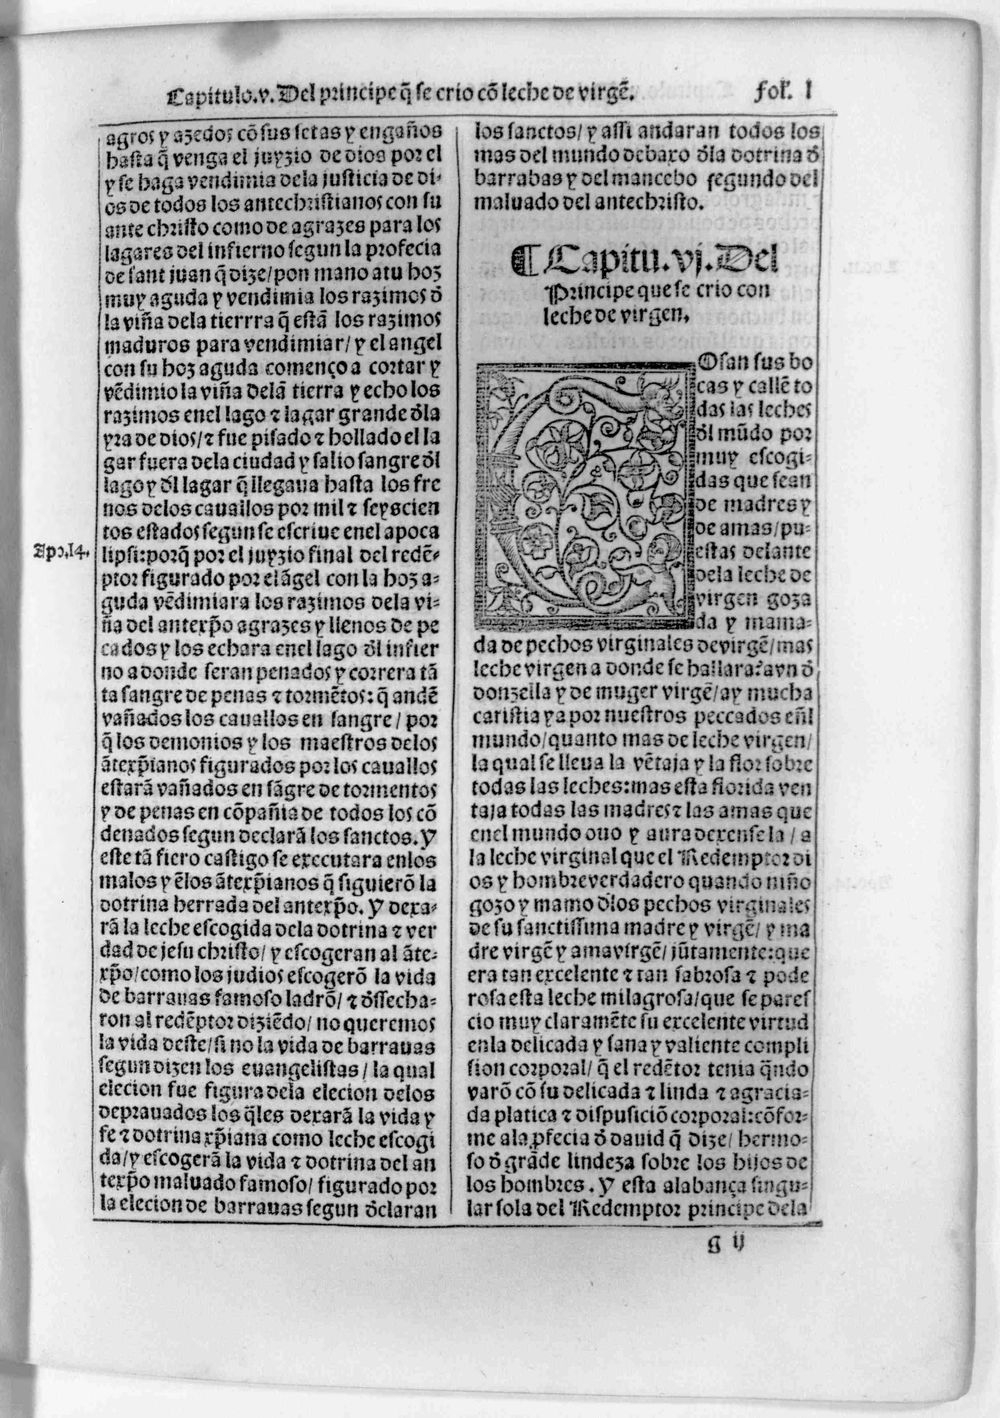 Capitulo.v. Del principe q̃ se crio cõ leche de virgẽ. fol. l
agros y azedos cõ sus setas y engaños
hasta q̃ venga el juyzio de dios por el
y se haga vendimia dela justicia de di-
os de todos los antechristianos con su
ante christo como de agrazes para los
lagares del infierno segun la profecia
de sant juan q̃ dize/pon mano a tu hoz
muy aguda y vendimia los razimos d̃
la viña dela tierrra q̃ estã los razimos
maduros para vendimiar/ y el angel
con su hoz aguda començo a cortar y
vẽdimio la viña delã tierra y echo los
razimos enel lago ⁊ lagar grande d̃la
yra de dios/⁊ fue pisado ⁊ hollado el la
gar fuera dela ciudad y salio sangre d̃l
lago y d̃l lagar q̃ llegaua hasta los fre
nos delos cauallos por mil ⁊ seyscien
tos estados segun se escriue enel apoca
Apo.14.
lipsi: porq̃ por el juyzio final del redẽ-
ptor figurado por el ãgel con la hoz a-
guda vẽdimiara los razimos dela vi-
ña del antexp̃o agrazes y llenos de pe
cados y los echara enel lago d̃l infier
no a donde seran penados y correra tã
ta sangre de penas ⁊ tormẽtos: q̃ andẽ
vañados los cauallos en sangre/ por
q̃ los demonios y los maestros delos
ãtexp̃ianos figurados por los cauallos
estarã vañados en sãgre de tormentos
y de penas en cõpañia de todos los cõ
denados segun declarã los sanctos. Y
este tã fiero castigo se executara enlos
malos y ẽlos ãtexp̃ianos q̃ siguierõ la
dotrina herrada del antexp̃o. Y dexa-
rã la leche escogida dela dotrina ⁊ ver
dad de jesu christo/ y escogeran al ãte-
xp̃o/como los judios escogerõ la vida
de barrauas famoso ladrõ/ ⁊ d̃ssecha-
ron al redẽptor diziẽdo/ no queremos
la vida deste/ si no la vida de barrauas
segun dizen los euangelistas/ la qual
elecion fue figura dela elecion delos
deprauados los q̃les dexarã la vida y
fe ⁊ dotrina xp̃iana como leche escogi
da/ y escogerã la vida ⁊ dotrina del an
texp̃o maluado famoso/ figurado por
la elecion de barrauas segun d̃claran
los sanctos/ y assi andaran todos los
mas del mundo debaxo d̃la dotrina d̃
barrabas y del mancebo segundo del
maluado del antechristo.
¶ Capitu. vj. Del
Principe que se crio con
leche de virgen.
COsan sus bo
cas y callẽ to
das las leches
d̃l mũdo por
muy escogi-
das que sean
de madres y
de amas/pu-
estas delante
dela leche de
virgen goza
da y mama-
da de pechos virginales de virgẽ/mas
leche virgen a donde se hallara? avn d̃
donzella y de muger virgẽ/ay mucha
caristia ya por nuestros peccados eñl
mundo/quanto mas de leche virgen/
la qual se lleua la vẽtaja y la flor sobre
todas las leches: mas esta florida ven
taja todas las madres ⁊ las amas que
enel mundo ouo y aura dexense la / a
la leche virginal que el Redemptor di
os y hombre verdadero quando niño
gozo y mamo d̃los pechos virginales
de su sanctissima madre y virgẽ/ y ma
dre virgẽ y ama virgẽ/ jũtamente: que
era tan excelente ⁊ tan sabrosa ⁊ pode
rosa esta leche milagrosa/que se pares
cio muy claramẽte su excelente virtud
enla delicada y sana y valiente compli
sion corporal/ q̃ el redẽtor tenia q̃ndo
varõ cõ su delicada ⁊ linda ⁊ agracia-
da platica ⁊ dispusiciõ corporal: cõfor-
me ala p̱fecia d̃ dauid q̃ dize/ hermo-
so d̃ grãde lindeza sobre los hijos de
los hombres. Y esta alabança singu-
lar sola del Redemptor principe dela
g ij